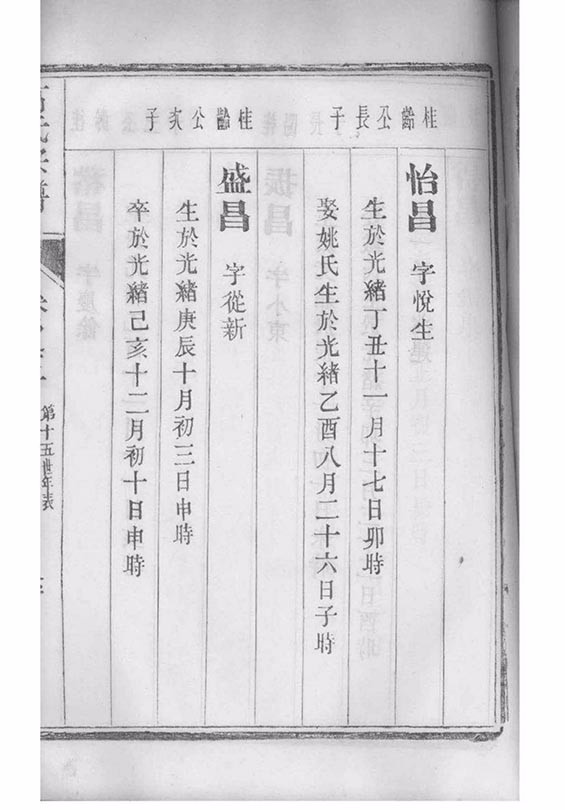 桂齡公長子
怡昌 字悅生
生於光緒丁丑十一月十七日卯時
娶姚氏生於光緒乙酉八月二十六日子時
桂齡公次子
盛昌 字從新
生於光緒庚辰十月初三日申時
卒於光緒己亥十二月初十日申時
第十五世年表